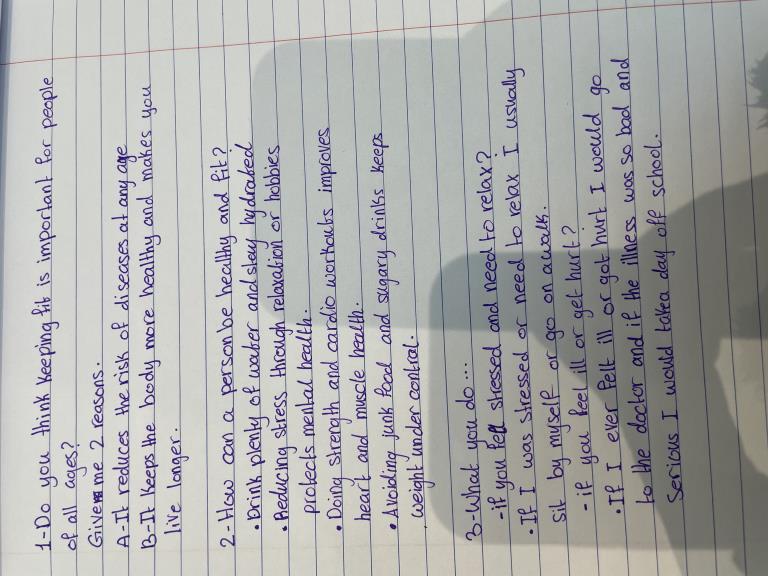 1-Do you think keeping fit is important for people
of all ages?
Give me 2 reasons.
A-It reduces the risk of diseases at any age
B-It keeps the body more healthy and makes you
live longer.
2-How can a person be healthy and fit?
• Drink plenty of water and stay hydrated
• Reducing stress through relaxation or hobbies
protects mental health.
• Doing strength and cardio workouts improves
heart and muscle health.
• Avoiding junk food and sugary drinks keeps
weight under control.
3-What you do...
- if you fell stressed and need to relax?
• If I was stressed or need to relax I usually
sit by myself or go on a walk.
- if you feel ill or get hurt?
• If I ever felt ill or got hurt I would go
to the doctor and if the illness was so bad and
serious I would take a day off school.